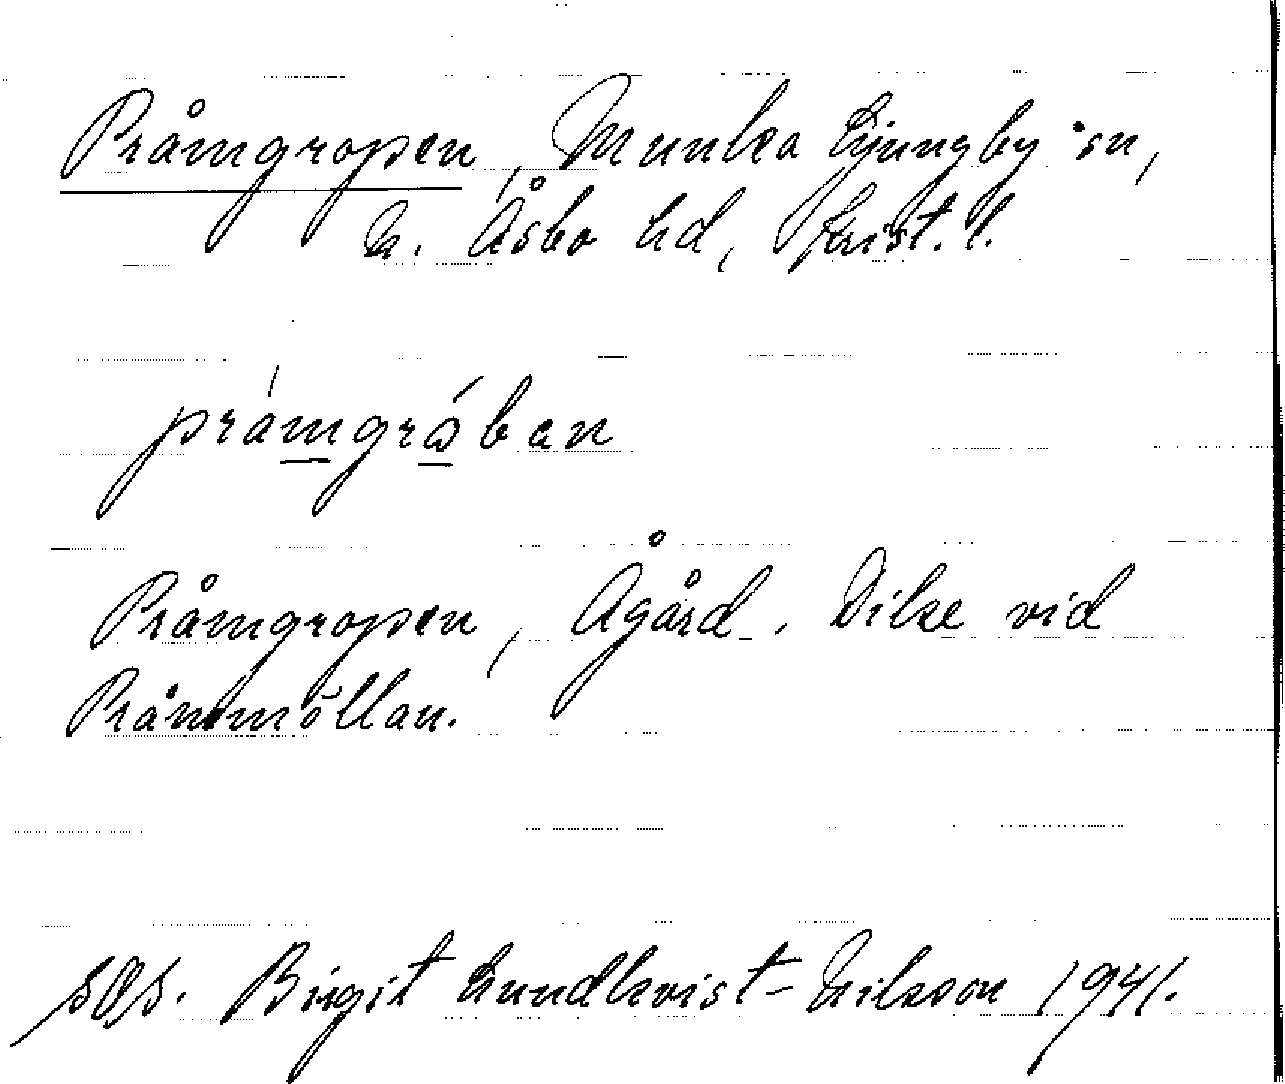 Pråmgropen, Munka Ljungby sn,
N. Åsbo hd, Krist. l.
pråmgróban
Pråmgropen, Ågård. Dike vid
Pråmmöllan.
Birgit Lundkvist-Nilsson 1941.